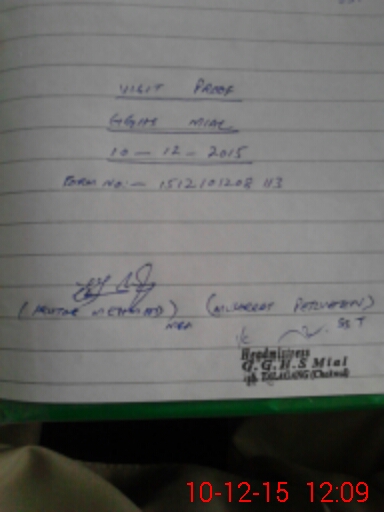 VISIT PROOF
GGHS MIAL
10 - 12 - 2015
FORM NO:- 1512101208 113
(MUSARRAT PERVEEN)
MEA
SST
Headmistress
G.G.H.S Mial
TALAGANG (Chakwal)
10-12-15 12:09